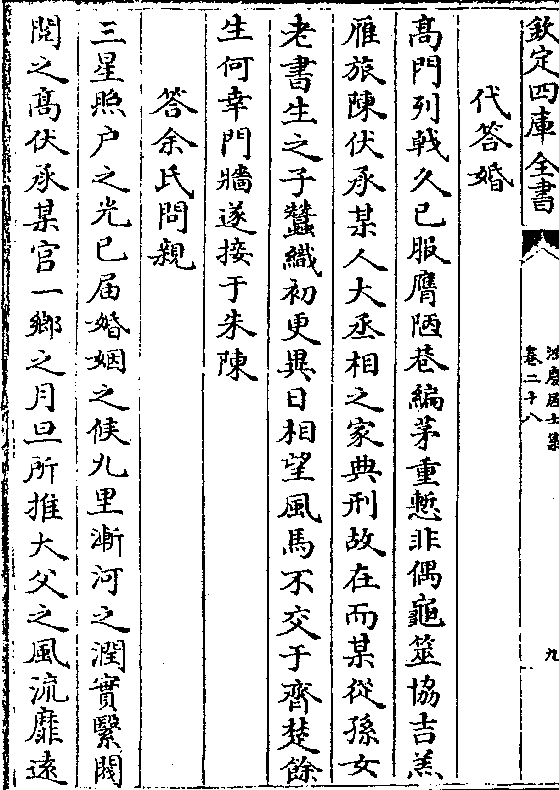 欽定四庫全書
卷二十八
九
代答婚
高門列㦸久已服膺陋巷編茅重慙非偶龜筮協吉羔
雁旅陳伏承某人大丞相之家典刑故在而某從孫女
老書生之子蠶織初更異日相望風馬不交于齊楚餘
生何幸門牆遂接于朱陳
答余氏問親
三星照户之光已届婚姻之候九里漸河之潤實繄閥
閲之髙伏承某官一鄉之月旦所推大父之風流靡遠